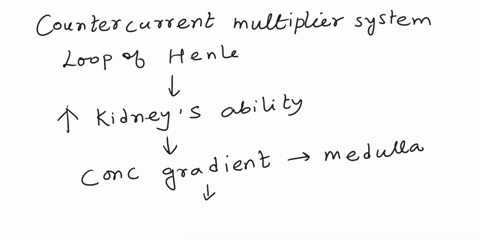 Countercurrent multiplier system
Loop of Henle
↓
↑ Kidney's ability
↓
Conc gradient → medulla
↓